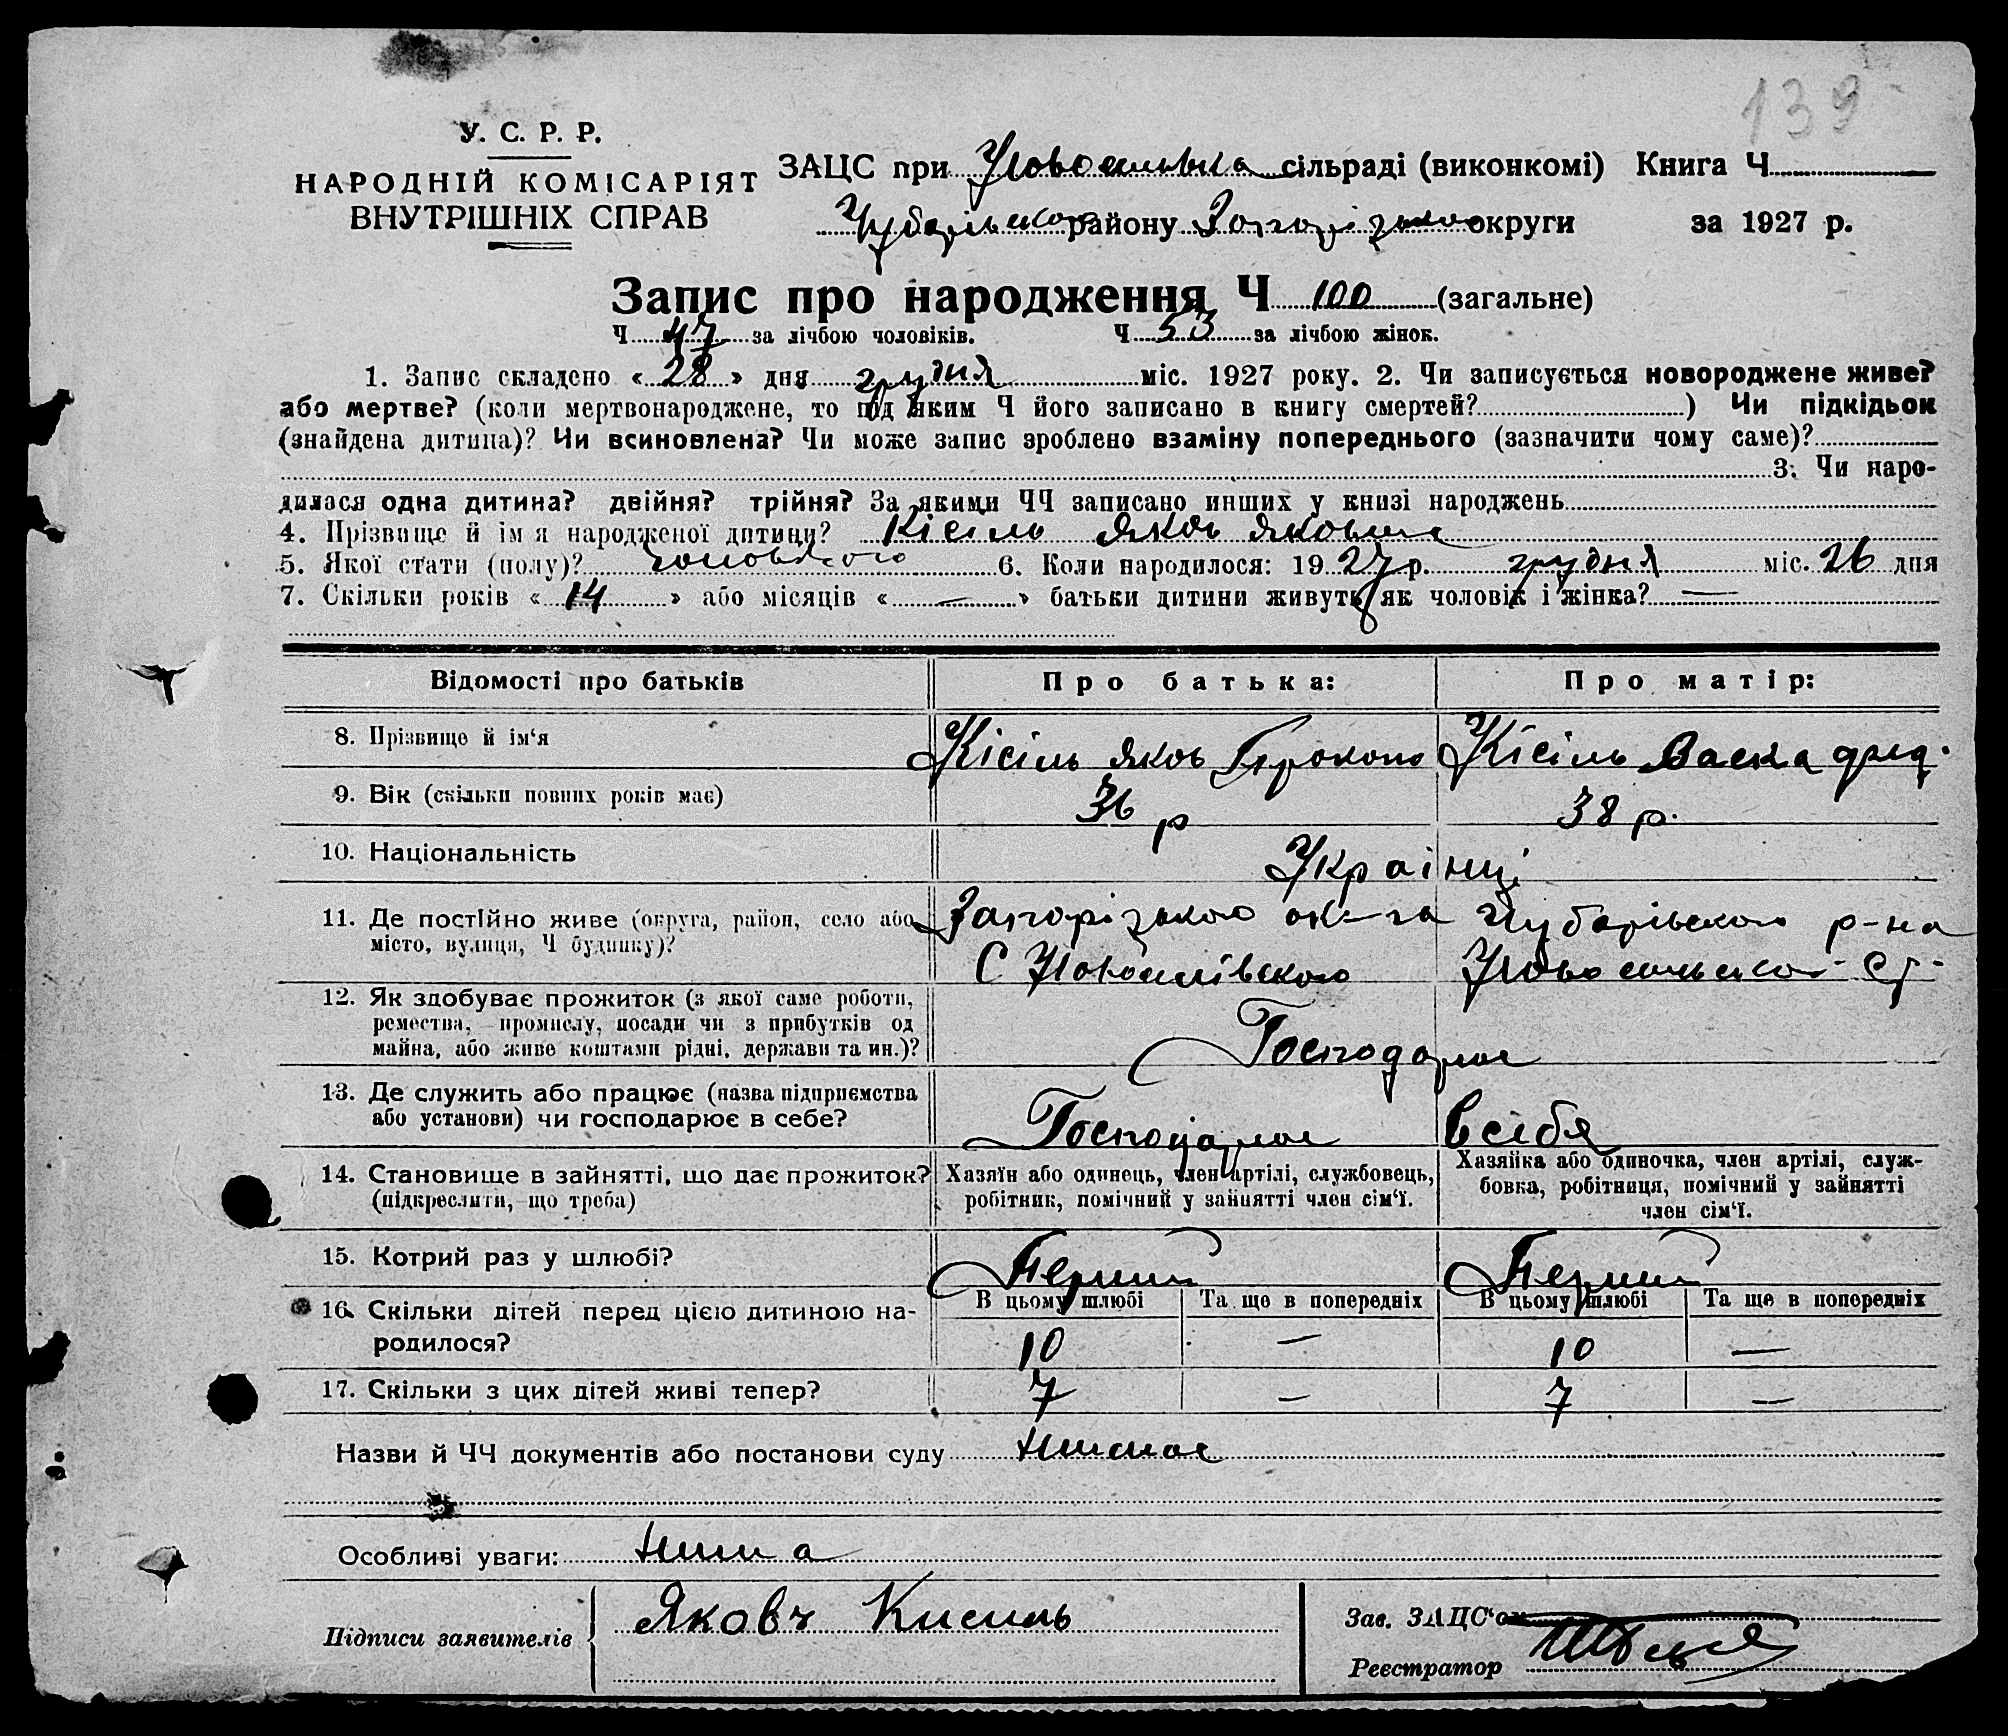 139
У. С. Р. Р.
НАРОДНІЙ КОМІСАРІЯТ
ВНУТРІШНІХ СПРАВ
ЗАЦС при сільраді (виконкомі) Книга Ч
району округи за 1927 р.
Запис про народження Ч 100 (загальне)
Ч 47 за лічбою чоловіків. Ч 53 за лічбою жінок.
1. Запис складено « 28 » дня грудня міс. 1927 року. 2. Чи записується новороджене живе?
або мертве? (коли мертвонароджене, то під яким Ч його записано в книгу смертей? ) Чи підкідьок
(знайдена дитина)? Чи всиновлена? Чи може запис зроблено взаміну попереднього (зазначити чому саме)?
3. Чи наро-
дилася одна дитина? двійня? трійня? За якими ЧЧ записано инших у книзі народжень
4. Прізвище й ім я народженої дитини? Кісіль Яков
5. Якої стати (полу)? 6. Коли народилося: 19 27 р. грудня міс. 26 дня
7. Скільки років « 14 » або місяців « — » батьки дитини живуть як чоловік і жінка? —
Відомості про батьків Про батька: Про матір:
8. Прізвище й ім‘я Кісіль Яков Прокопо Кісіль Васка
9. Вік (скільки повних років має) 36 р 38 р.
10. Національність Українці
11. Де постійно живе (округа, район, село або
місто, вулиця, Ч будинку)?
12. Як здобуває прожиток (з якої саме роботи,
ремества, промислу, посади чи з прибутків од
майна, або живе коштами рідні, держави та ин.)?
13. Де служить або працює (назва підприємства
або установи) чи господарює в себе? всібя
14. Становище в зайнятті, що дає прожиток?
(підкреслити, що треба)
Хазяїн або одинець, член артілі, службовець,
робітник, помічний у зайнятті член сім‘ї.
Хазяйка або одиночка, член артілі, служ-
бовка, робітниця, помічний у зайнятті
член сім‘ї.
15. Котрий раз у шлюбі? Перший Перший
16. Скільки дітей перед цією дитиною на-
родилося?
В цьому шлюбі Та ще в попередніх В цьому шлюбі Та ще в попередніх
10 — 10 —
17. Скільки з цих дітей живі тепер? 7 — 7 —
Назви й ЧЧ документів або постанови суду
Особливі уваги:
Підписи заявителів Яковъ Кисиль
Зав. ЗАЦС‘ом
Реєстратор